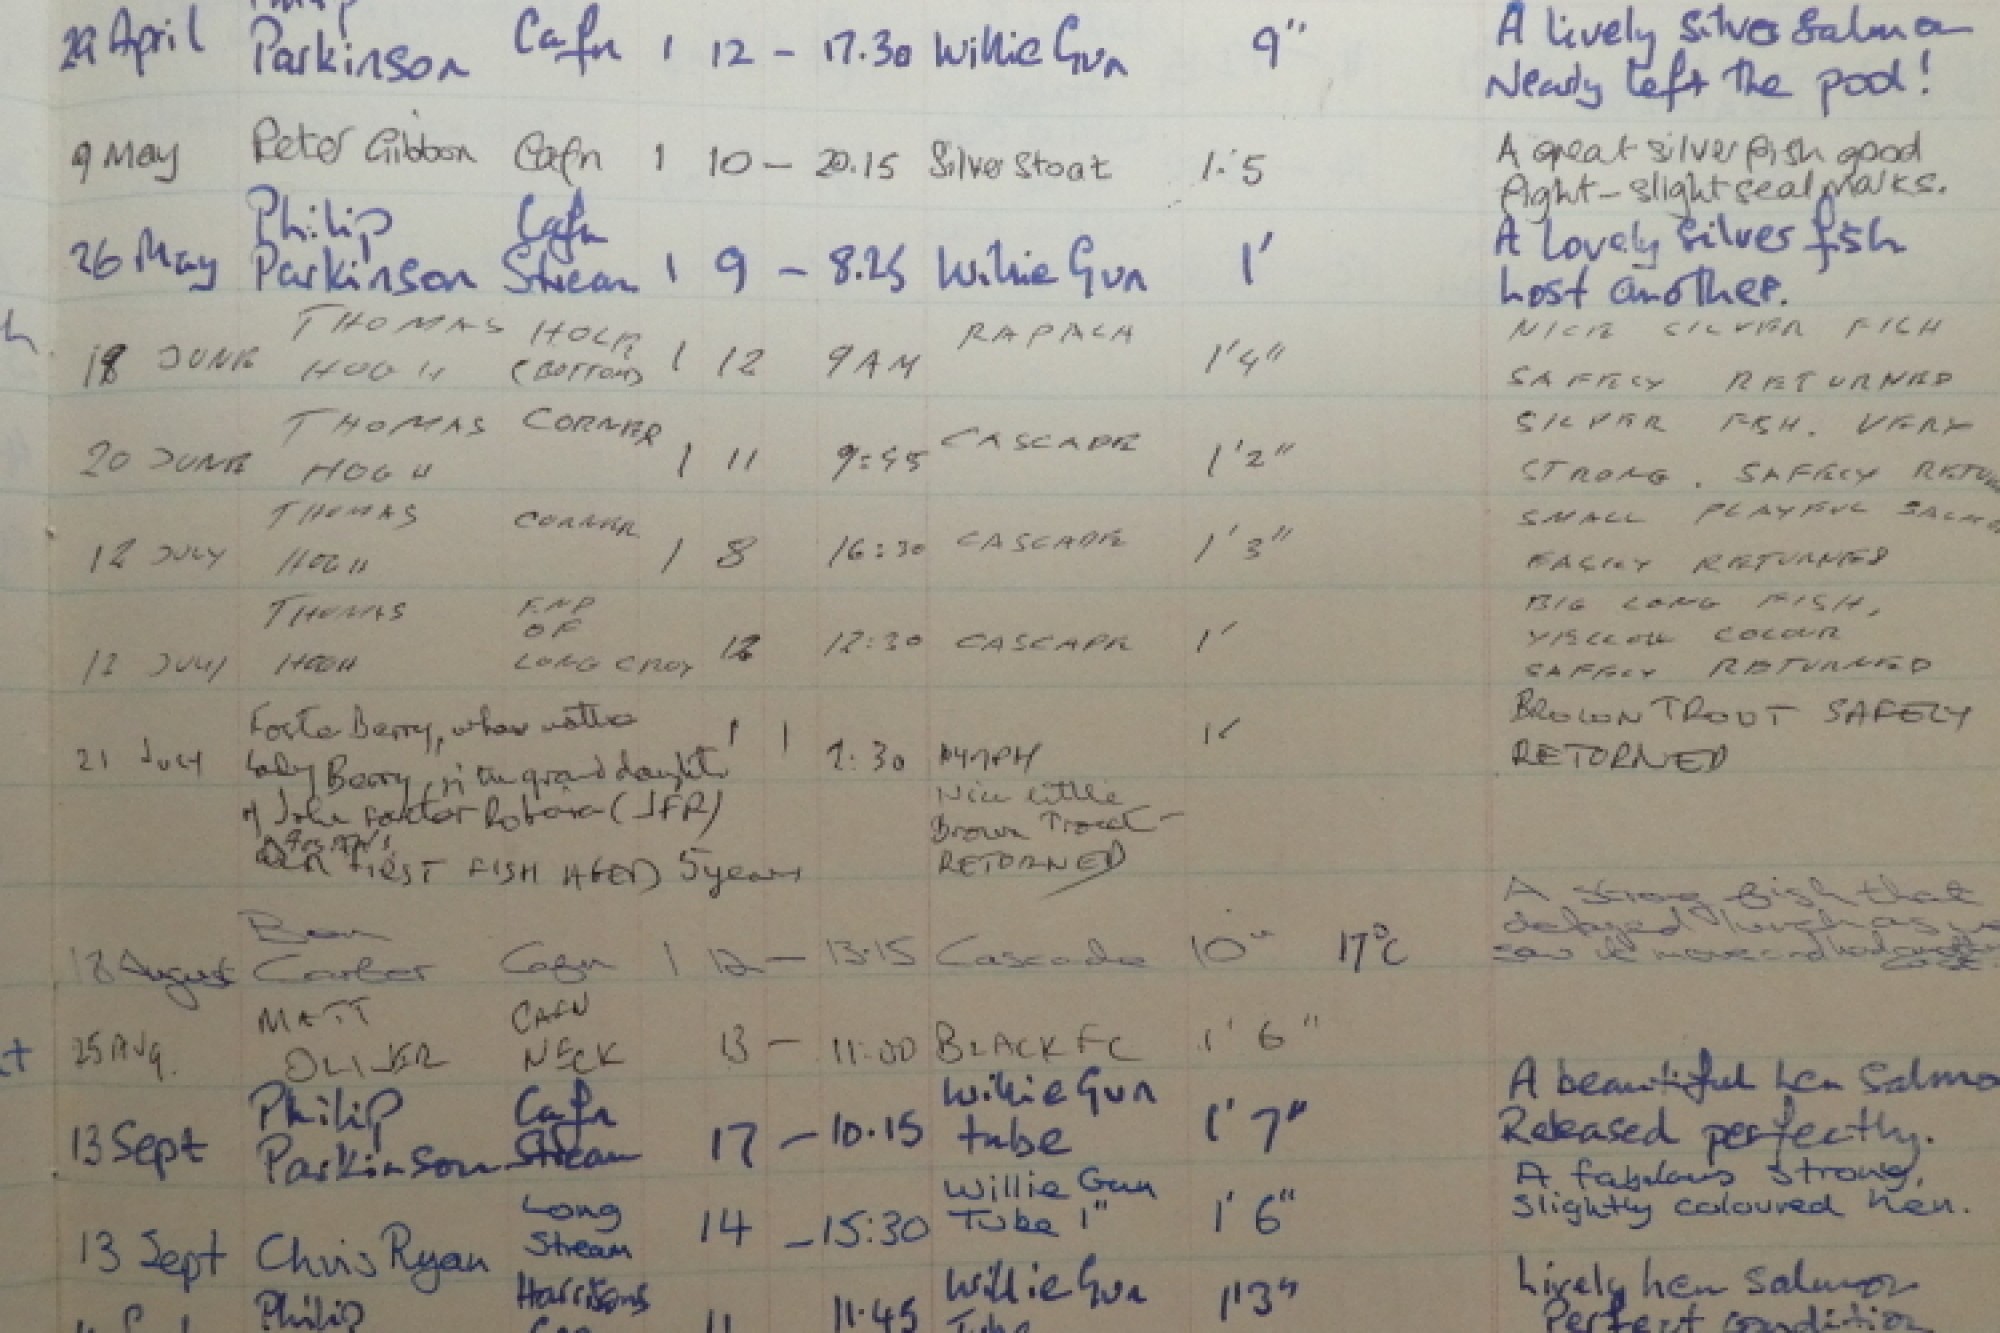 29 April Parkinson Cafn 1 12 - 17.30 Willie Gun 9" A lively silver salmon
Nearly left the pool!
9 May Peter Gibbon Cafn 1 10 - 20.15 Silver Stoat 1.5 A great silver fish good
fight - slight seal marks.
26 May Philip Cafn A lovely silver fish
Parkinson Stream 1 9 - 8.25 Willie Gun 1' Lost another.
18 JUNE THOMAS HOLE RAPALA NICE SILVER FISH
(BOTTOM) 1 12 9 AM 1'4" SAFELY RETURNED
20 JUNE THOMAS CORNER CASCADE SILVER FISH. VERY
1 11 9:45 1'2" STRONG. SAFELY
12 JULY THOMAS CORNER 1 8 16:30 CASCADE 1'3" SMALL PLAYFUL
EASILY RETURNED
THOMAS END BIG LONG FISH,
12 JULY OF 12:30 CASCADE 1' YELLOW COLOUR
LONG CROY SAFELY RETURNED
21 JULY Berry, BROWN TROUT SAFELY
Berry, granddaughter 1 1 :30 NYMPH 1' RETURNED
of John Forster (JFR) Nice little
Brown Trout -
FIRST FISH AGED 5 years RETURNED
18 August Ben A strong fish that
Carter Cafn 1 12 - 13.15 Cascade 10" 17°C delayed lunch as
25 Aug. MATT CAFN
OLIVER NECK 13 - 11:00 BLACK FC 1' 6"
13 Sept Philip Cafn Willie Gun A beautiful hen
Parkinson Stream 17 - 10.15 tube 1' 7" Released perfectly.
13 Sept Chris Ryan Long Willie Gun A fabulous strong,
Stream 14 - 15:30 Tube 1" 1' 6" slightly coloured hen.
Philip Harrisons 11 11.45 Willie Gun 1'3" Lively hen salmon
Tube Perfect condition